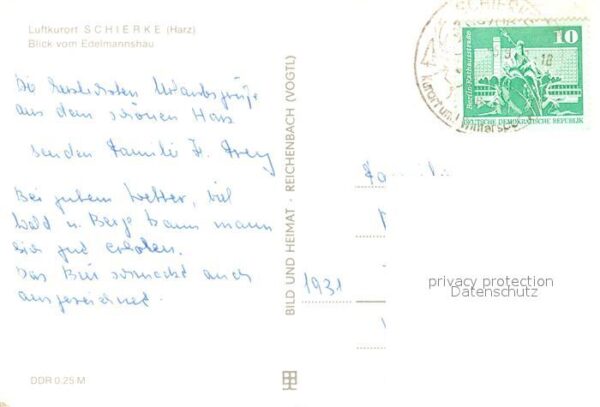 Luftkurort SCHIERKE (Harz)
Blick vom Edelmannshau
Die herzlichsten Urlaubsgrüße
aus dem schönen Harz
senden Familie H.
Bei gutem Wetter, viel
Wald u. Berg kann mann
sich gut erholen.
Das Bier schmeckt auch
ausgezeichnet.
DDR 0.25 M
BILD UND HEIMAT · REICHENBACH (VOGTL)
SCHIERKE
18
Kurort und Wintersport
10
Berlin · Rathausstraße
DEUTSCHE DEMOKRATISCHE REPUBLIK
1931
privacy protection
Datenschutz